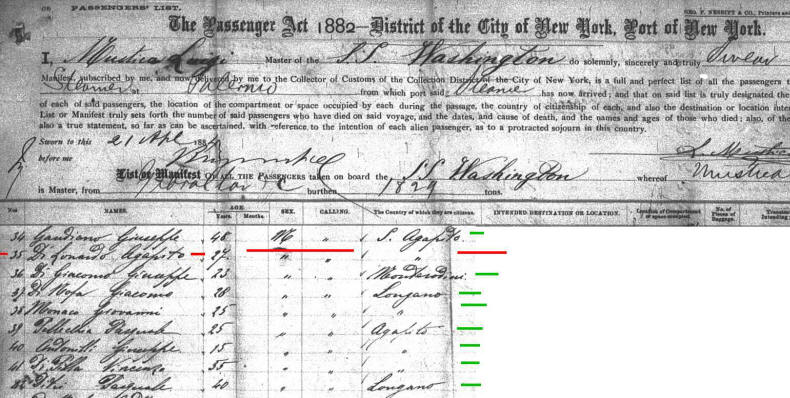 PASSENGERS' LIST.
GEO. F. NESBITT & CO., Printers and
The Passenger Act 1882—District of the City of New York, Port of New York.
I, Mustica Luigi Master of the S.S. Washington do solemnly, sincerely and truly Swear
Manifest, subscribed by me, and now delivered by me to the Collector of Customs of the Collection District of the City of New York, is a full and perfect list of all the passengers t
Steamer at Palermo from which port said Steamer has now arrived; and that on said list is truly designated the
of each of said passengers, the location of the compartment or space occupied by each during the passage, the country of citizenship of each, and also the destination or location inte
List or Manifest truly sets forth the number of said passengers who have died on said voyage, and the dates, and cause of death, and the names and ages of those who died; also, of the
also a true statement, so far as can be ascertained, with reference to the intention of each alien passenger, as to a protracted sojourn in this country.
Sworn to this 21 Apl 188
before me L. Mustica
List or Manifest OF ALL THE PASSENGERS taken on board the S.S. Washington whereof Mustica
is Master, from Gibraltar burthen 1829 tons.
Nos NAMES. AGE Years. Months. SEX. CALLING. The Country of which they are citizens. INTENDED DESTINATION OR LOCATION. Location of Compartment or space occupied. No. of Pieces of Baggage. Transient, Intending
34 Gaudiano Giuseppe 48 M " S. Agapito
35 Di Lonardo Agapito 27 " " "
36 Di Giacomo Giuseppe 23 " "
37 Di Giacomo 28 " " Longano
38 Monaco Giovanni 25 " "
39 Pasquale 25 " " Agapito
40 Giuseppe 15 " " "
41 Di Vincenzo 55 " " "
Pasquale 40 " " Longano